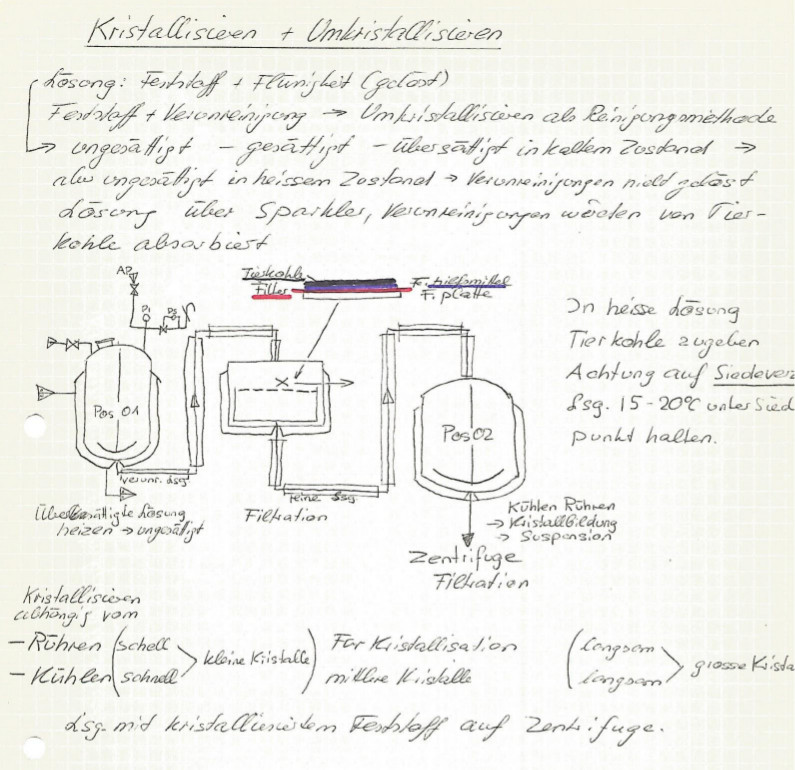 Kristallisieren + Umkristallisieren
Lösung: Feststoff + Flüssigkeit (gelöst)
Feststoff + Verunreinigung → Umkristallisieren als Reinigungsmethode
→ ungesättigt - gesättigt - übersättigt in kaltem Zustand →
also ungesättigt in heissem Zustand → Verunreinigungen nicht gelöst
Lösung über Sparkler, Verunreinigungen werden von Tier-
kohle absorbiert
AP
PI
PS
Tierkohle
Filter
F. hilfsmittel
F. platte
In heisse Lösung
Tierkohle zugeben
Achtung auf Siedeverz
Lsg. 15-20°C unter Sied
punkt halten.
Pos 01
Pos 02
verunr. Lsg
reine Lsg
Übersättigte Lösung
heizen → ungesättigt
Filtration
Kühlen Rühren
→ Kristallbildung
→ Suspension
Zentrifuge
Filtration
Kristallisieren
abhängig vom
- Rühren (schell > kleine Kristalle) Für Kristallisation (langsam > grosse Krista
- Kühlen (schnell mittlere Kristalle (langsam
Lsg. mit kristallisiertem Feststoff auf Zentrifuge.